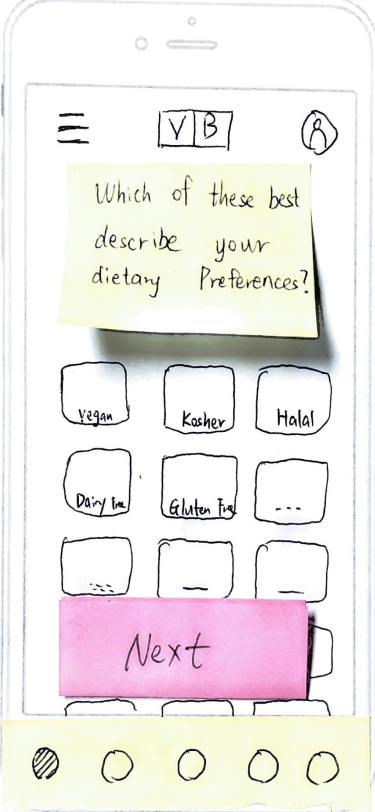 V B
Which of these best
describe your
dietary Preferences?
Vegan
Kosher
Halal
Dairy Free
Gluten Free
...
Next